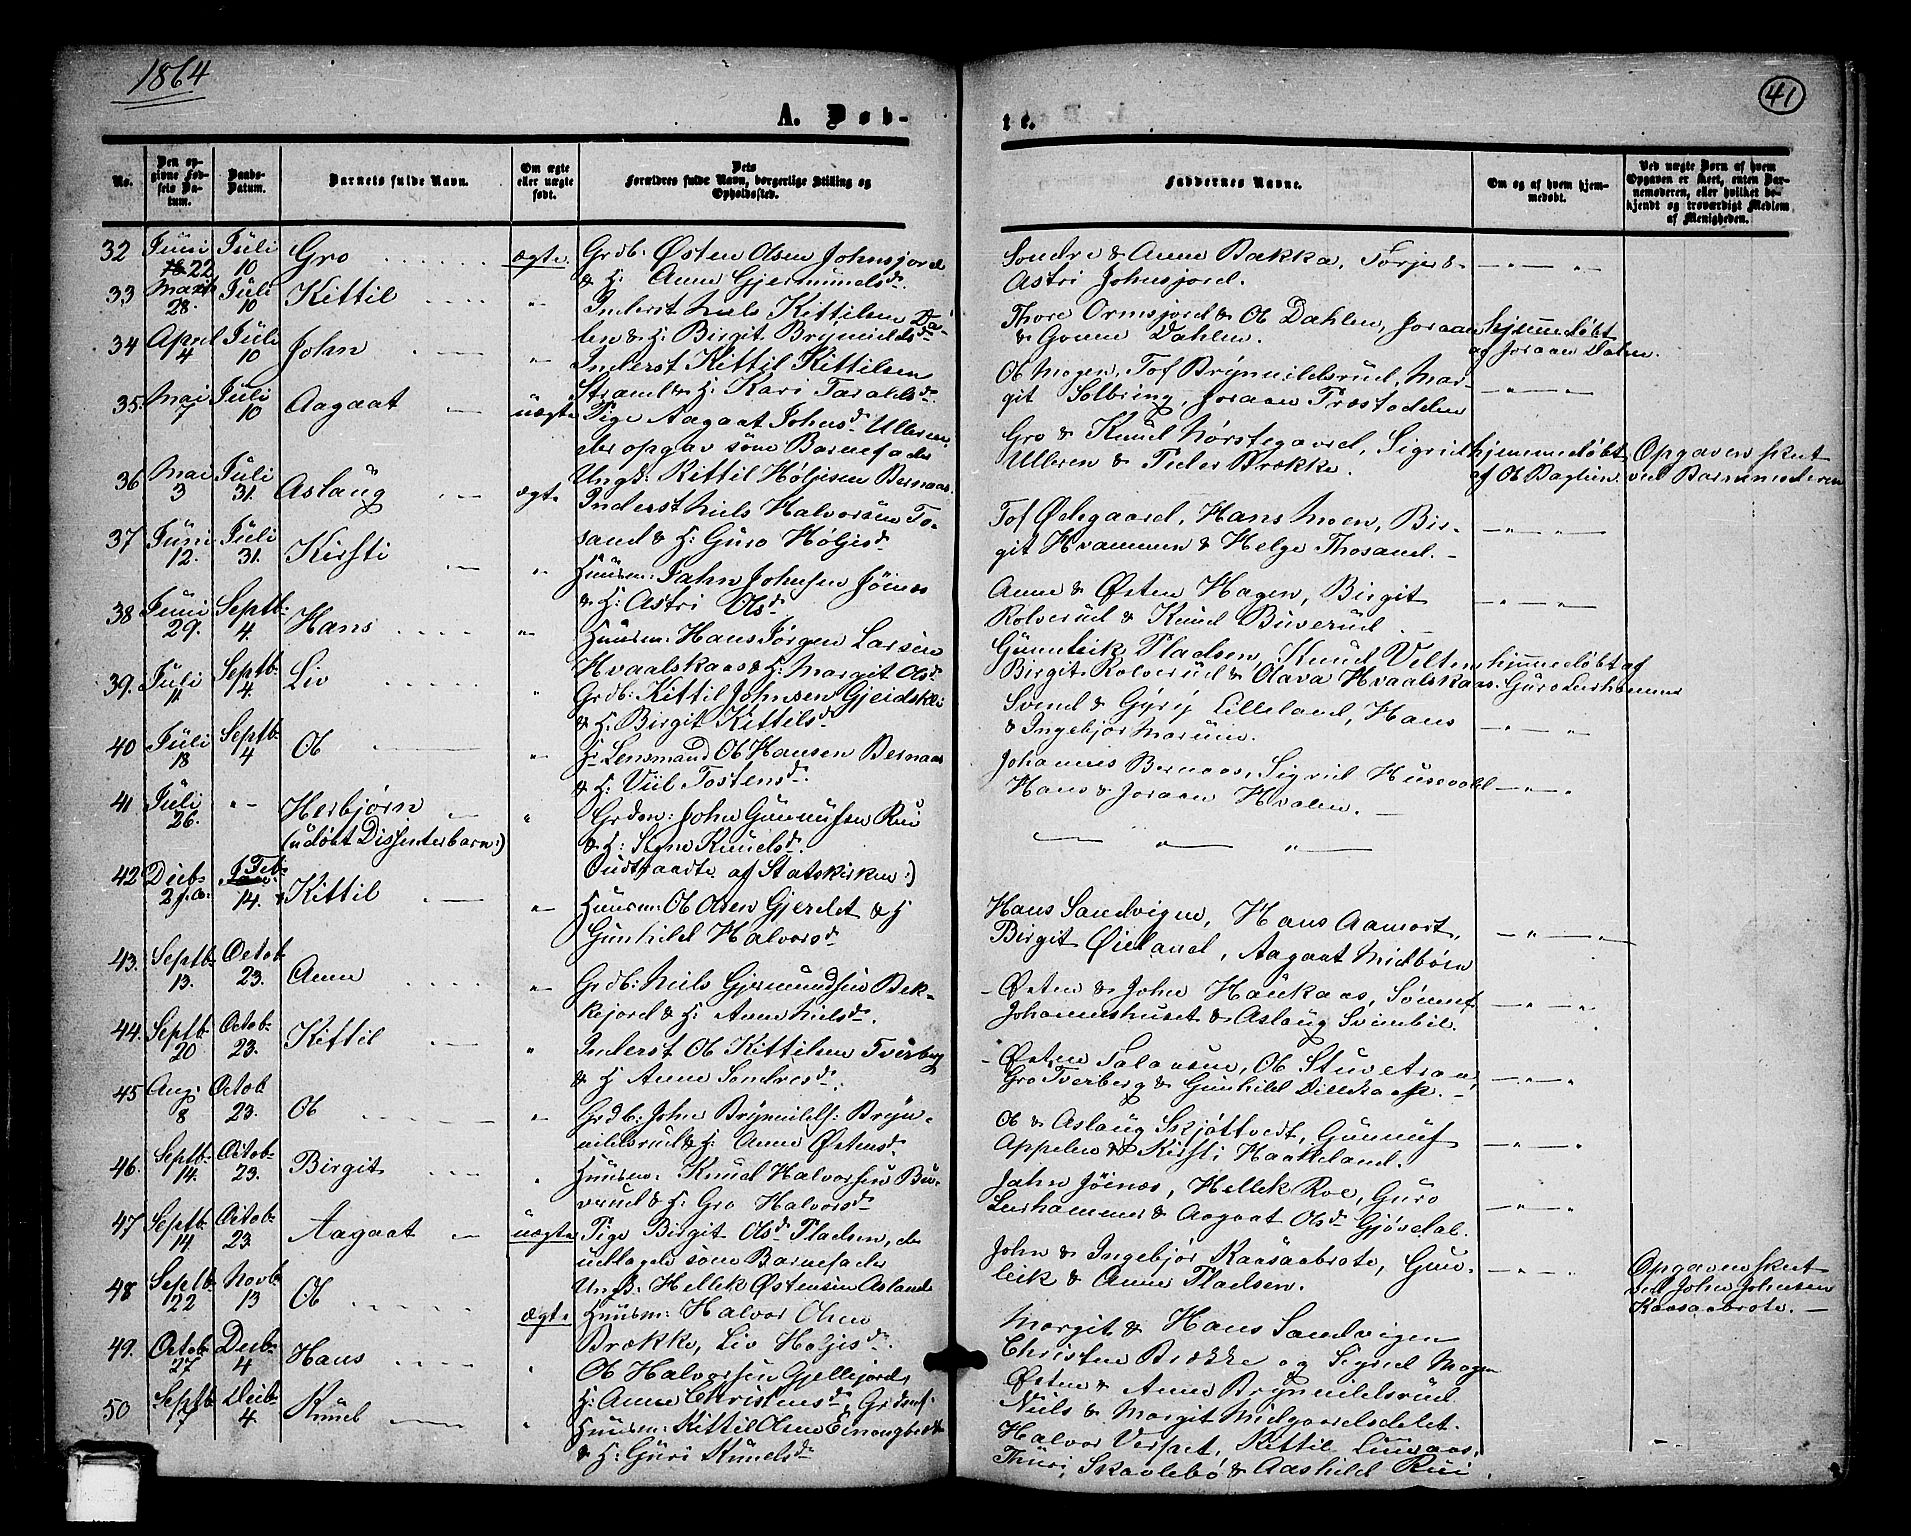 1864
41
A. Døb-
te.
No.
Den op-
givne Fød-
sels Da-
tum.
Daabs-
Datum.
Barnets fulde Navn.
Om ægte
eller uægte
født.
Dets
Forældres fulde Navn, borgerlige Stilling og
Opholdssted.
Faddernes Navne.
Om og af hvem hjem-
medøbt.
Ved uægte Børn af hvem
Opgaven er skeet, enten Bar-
nemoderen, eller hvilket be-
kjendt og troværdigt Medlem
af Menigheden.
32 Juni 22 Juli 10 Gro ægte Grdb: Østen Olsen Johnsjord
& H: Anne Gjermundsd.
Sondre & Anne Bakka, Torjer &
Astri Johnsjord.
33 Marts 28. Juli 10 Kittil " Inderst Niels Kittilsen Da-
len & H: Birgit Brynnildsd.
Thore Ormsjord & Ol Dahlen, Joraan
& Gunne Dahlen.
hjemmedøbt
af Joraan Dalen.
34 April 4 Juli 10 John " Inderst Kittil Kittilsen
Strand & H: Kari Taraldsd.
Ol Mogen, Tof Brynnildsrud, Mar-
git Solbring, Joraan Træstodden
35. Mai 7 Juli 10 Aagaat uægte Pige Aagaat Johnsd. Ullern,
der opgav som Barnefader
Ungk: Kittil Høljesen Bernaas.
Gro & Knud Nørstegaard, Sigrid
Ullern & Peder Brække.
hjemmedøbt
af Ol Baglien.
Opgaven skeet
ved Barnemoderen
36 Mai 3 Juli 31. Aslaug ægte Inderst Niels Halvorsen To-
sand & H: Guro Høljesd.
Tof Ødegaard, Hans Moen, Bir-
git Hvammen & Helge Thosand.
37 Juni 12. Juli 31. Kirsti " Huusm: Jahn Johnsen Jøines
& H: Astri Olsd.
Anne & Østen Hagen, Birgit
Rolverud & Knud Buverud.
38 Juni 29. Septb: 4. Hans " Huusm: Hans Jørgen Larsen
Hvaalskaas & H: Margit Olsd.
Gunleik Pladsen, Knud Velten
Birgit Rolverud & Olava Hvaalskaas.
hjemmedøbt af
Guro Leerhammer
39. Juli 11 Septb. 4 Liv " Grdb: Kittil Johnsen Gjeidskli
& H: Birgit Kittilsd.
Svend & Gyrij Lilleland, Hans
& Ingebjør Moruen.
40 Juli 18 Septb. 4 Ol " Lensmand Ol Hansen Bernaas
& H: Viil Tostensd.
Johannes Bernaas, Sigrid Husevold
Hans & Joraan Hvalen.
41 Juli 26. " Herbjørn
(udøbt Dissenterbarn:)
" Grdm: John Gunnufsen Rui
& H: Signe Knudsd.
(Udtraadte af Statskirken:)
42 Decb. 14. Kittil " Huusm: Ol Olsen Gjerdet & H
Gunhild Halvorsd.
Hans Sandvigen, Hans Aamort,
Birgit Øieland, Aagaat Midbøen
43. Septb. 13. Octob 23. Anne " Grdb: Niels Gjermundsen Bek-
kejord & H: Anne Nielsd.
Østen & John Haukaas, Sønnef
Johanneshuset & Aslaug Svimbil.
44. Septb 20 Octob. 23. Kittil " Inderst Ol Kittilsen Tverberg
& H Anne Sondresd.
Østen Talaasen, Ol Stuvetraa,
Gro Tverberg & Gunhild Dillekaase.
45 Aug. 8 Octob 23. Ol " Grdb: John Brynnildsf: Bryn-
nildsrud & H: Anne Østensd.
Ol & Aslaug Skjøttvedt, Gunnuf
Appelen & Kirsti Haakeland.
46. Septb. 14. Octob. 23. Birgit " Huusm: Knud Halvorsen Bu-
verud & H: Gro Halvorsd.
Jahn Jøines, Hellek Roe, Guro
Leerhammer & Aagaat Olsd. Gjøsdal.
47 Septb 14. Octob. 23 Aagaat uægte Pige Birgit Olsd. Pladsen, der
udlagde som Barnefader
Ungk: Hellek Østensen Asland
John & Ingebjør Kaasaabrote, Gun-
leik & Anne Pladsen.
Opgaven skeet
ved John Johnsen
Kaasaabrote.
48 Septb 22 Novb. 13 Ol ægte Huusm: Halvor Olsen
Brække, Liv Høljesd.
Margit & Hans Sandvigen
Christen Brække og Sigrid Mogen
49. Octob. 27 Decb. 4 Hans " Ol Halvorsen Gjellejord,
H: Anne Christensd.
Østen & Anne Brynnildsrud
Niels & Margit Midgaardsdelet.
50 Septb 7 Decb. 4. Knud " Huusm: Kittil Olsen
& H: Guri Knudsd.
Halvor Verpet, Kittil
Thuri Skavlebø & Aashild Rui.